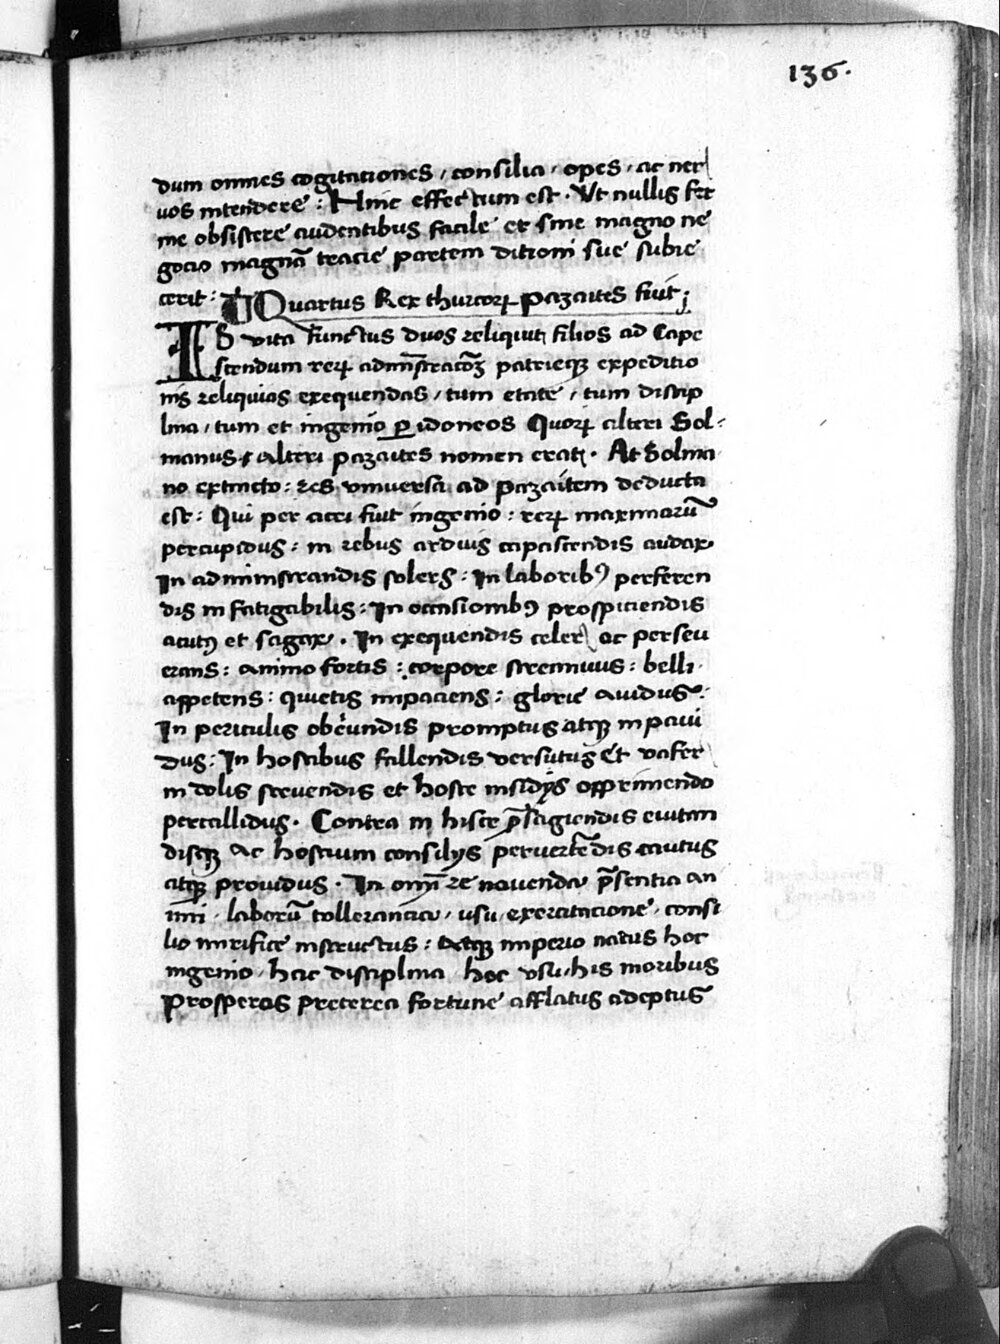 136.
dum omnes cogitationes / consilia / opes / ac ner
uos intendere : Hinc effectum est . Vt nullis fer
me obsistere audentibus facile et sine magno ne
gocio magnā tracie partem ditioni sue subie
cerit :
Quartus Rex thurcoꝝ pazaites fiut ;
IS vita functus duos reliquit filios ad Cape
scendum reꝝ admīstracōꝫ patrieqꝫ expeditio
nis reliquias exequendas / tum etate / tum discip
lina / tum et ingenio ꝑidoneos Quoꝝ alteri Sol-
manus / alteri pazaites nomen erat . At Solma
no extincto : res vniuersa ad pazaitem deducta
est : Qui per acri fiut ingenio : reꝝ maximarū
percupidus : in rebus arduis capascendis audax
In administrandis solers : In laboribꝰ perferen
dis in fatigabilis : In occasionibꝰ prospiciendis
acutꝰ et sagax . In exequendis celer ac perseu
erans : animo fortis : corpore strennuus : belli
appetens : quietis impaciens : glorie auidus :
In periculis obeundis promptus atqꝫ inpaui
dus : In hostibus fallendis versutus Et vafer
in dolis struendis et hoste insidijs opprimendo
percallidus . Contra in hisce p̄sagiendis euitan
disqꝫ Ac hostium consilijs peruertēdis cautus
atqꝫ prouidus . In omī re nauenda p̄sentia an
imi / laborū tollerancia / usu / exercitacione / consi
lio mirifice instructus : Atqꝫ imperio natus hoc
ingenio / hac disciplina / hoc vsu / his moribus
Prosperas preterea fortune afflatus adeptus